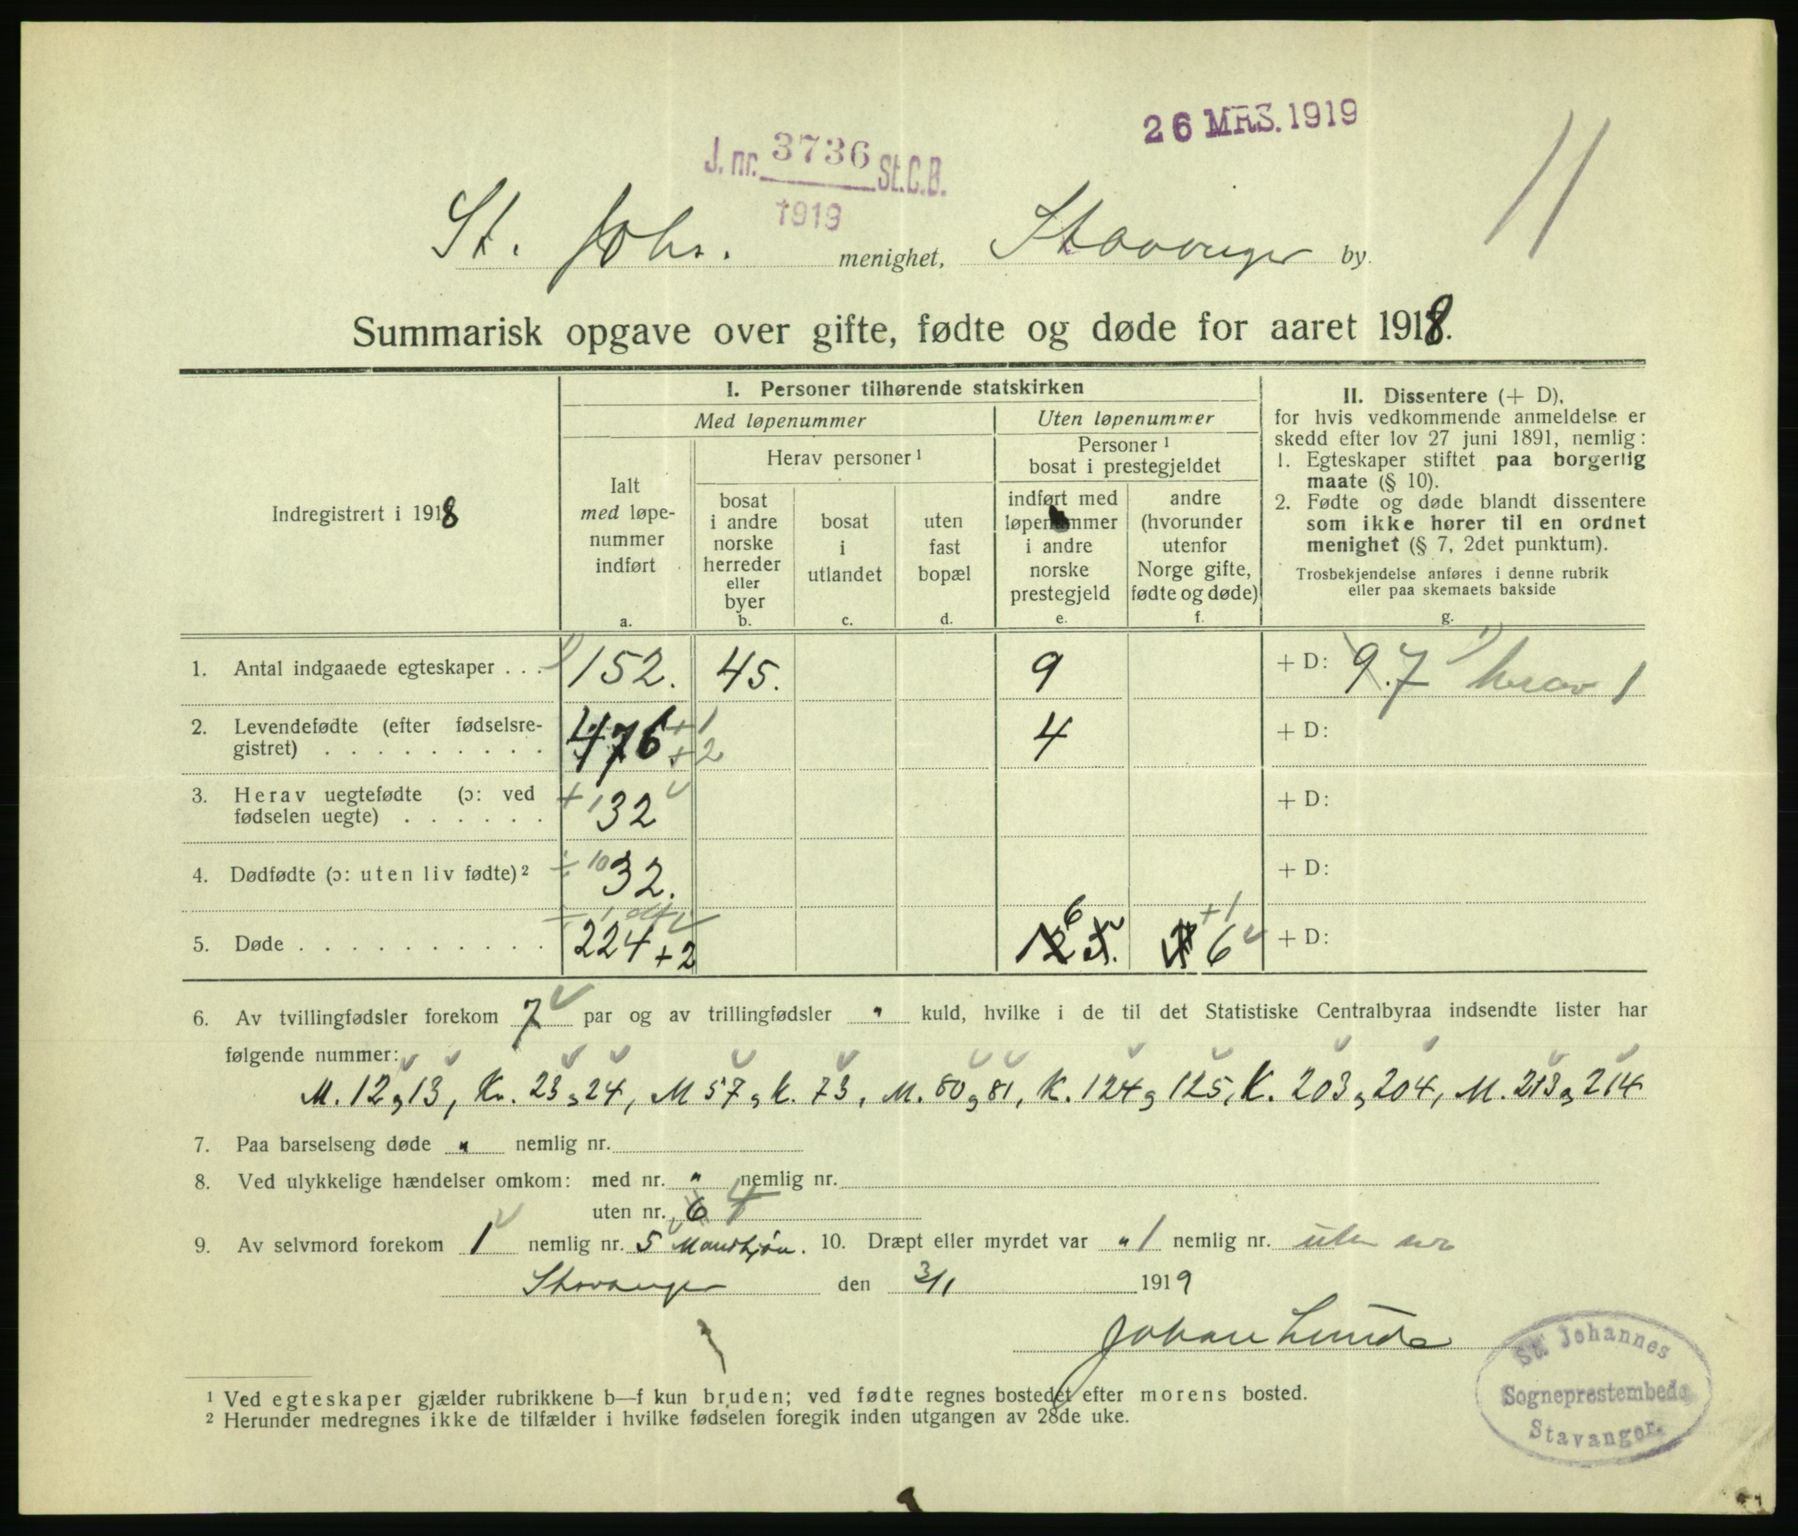 26 MRS. 1919
J. nr. 3736 St. C. B.
1919
11
St. Johs. menighet, Stavanger by.
Summarisk opgave over gifte, fødte og døde for aaret 1918.
Indregistrert i 1918
I. Personer tilhørende statskirken
Med løpenummer
Uten løpenummer
Ialt
med løpe-
nummer
indført
a.
Herav personer 1
bosat
i andre
norske
herreder
eller
byer
b.
bosat
i
utlandet
c.
uten
fast
bopæl
d.
Personer 1
bosat i prestegjeldet
indført med
løpenummer
i andre
norske
prestegjeld
e.
andre
(hvorunder
utenfor
Norge gifte,
fødte og døde)
f.
II. Dissentere (+ D),
for hvis vedkommende anmeldelse er
skedd efter lov 27 juni 1891, nemlig:
1. Egteskaper stiftet paa borgerlig
maate (§ 10).
2. Fødte og døde blandt dissentere
som ikke hører til en ordnet
menighet (§ 7, 2det punktum).
Trosbekjendelse anføres i denne rubrik
eller paa skemaets bakside
g.
1. Antal indgaaede egteskaper . . . 152. 45. 9 + D: 9.7 1) herav 1
2. Levendefødte (efter fødselsre-
gistret) . . . . . . . . . 476 +1 +2 4 + D:
3. Herav uegtefødte (ɔ: ved
fødselen uegte) . . . . . . +1 32 + D:
4. Dødfødte (ɔ: uten liv fødte) 2 ÷ 10 32. + D:
5. Døde . . . . . . . . . . 224 + 2 6 +1 6 + D:
6. Av tvillingfødsler forekom 7 par og av trillingfødsler " kuld, hvilke i de til det Statistiske Centralbyraa indsendte lister har
følgende nummer:
M. 12 og 13, Kv. 23 og 24, M 57 og K. 73, M. 80 og 81, K. 124 og 125, K. 203 og 204, M. 213 og 214
7. Paa barselseng døde " nemlig nr.
8. Ved ulykkelige hændelser omkom: med nr. " nemlig nr.
uten nr. 6
9. Av selvmord forekom 1 nemlig nr. 5 Mandkjøn. 10. Dræpt eller myrdet var " 1 nemlig nr. uten nr.
Stavanger den 3/1 1919
Johan Lunde
St. Johannes
Sogneprestembede
Stavanger.
1 Ved egteskaper gjælder rubrikkene b—f kun bruden; ved fødte regnes bostedet efter morens bosted.
2 Herunder medregnes ikke de tilfælder i hvilke fødselen foregik inden utgangen av 28de uke.